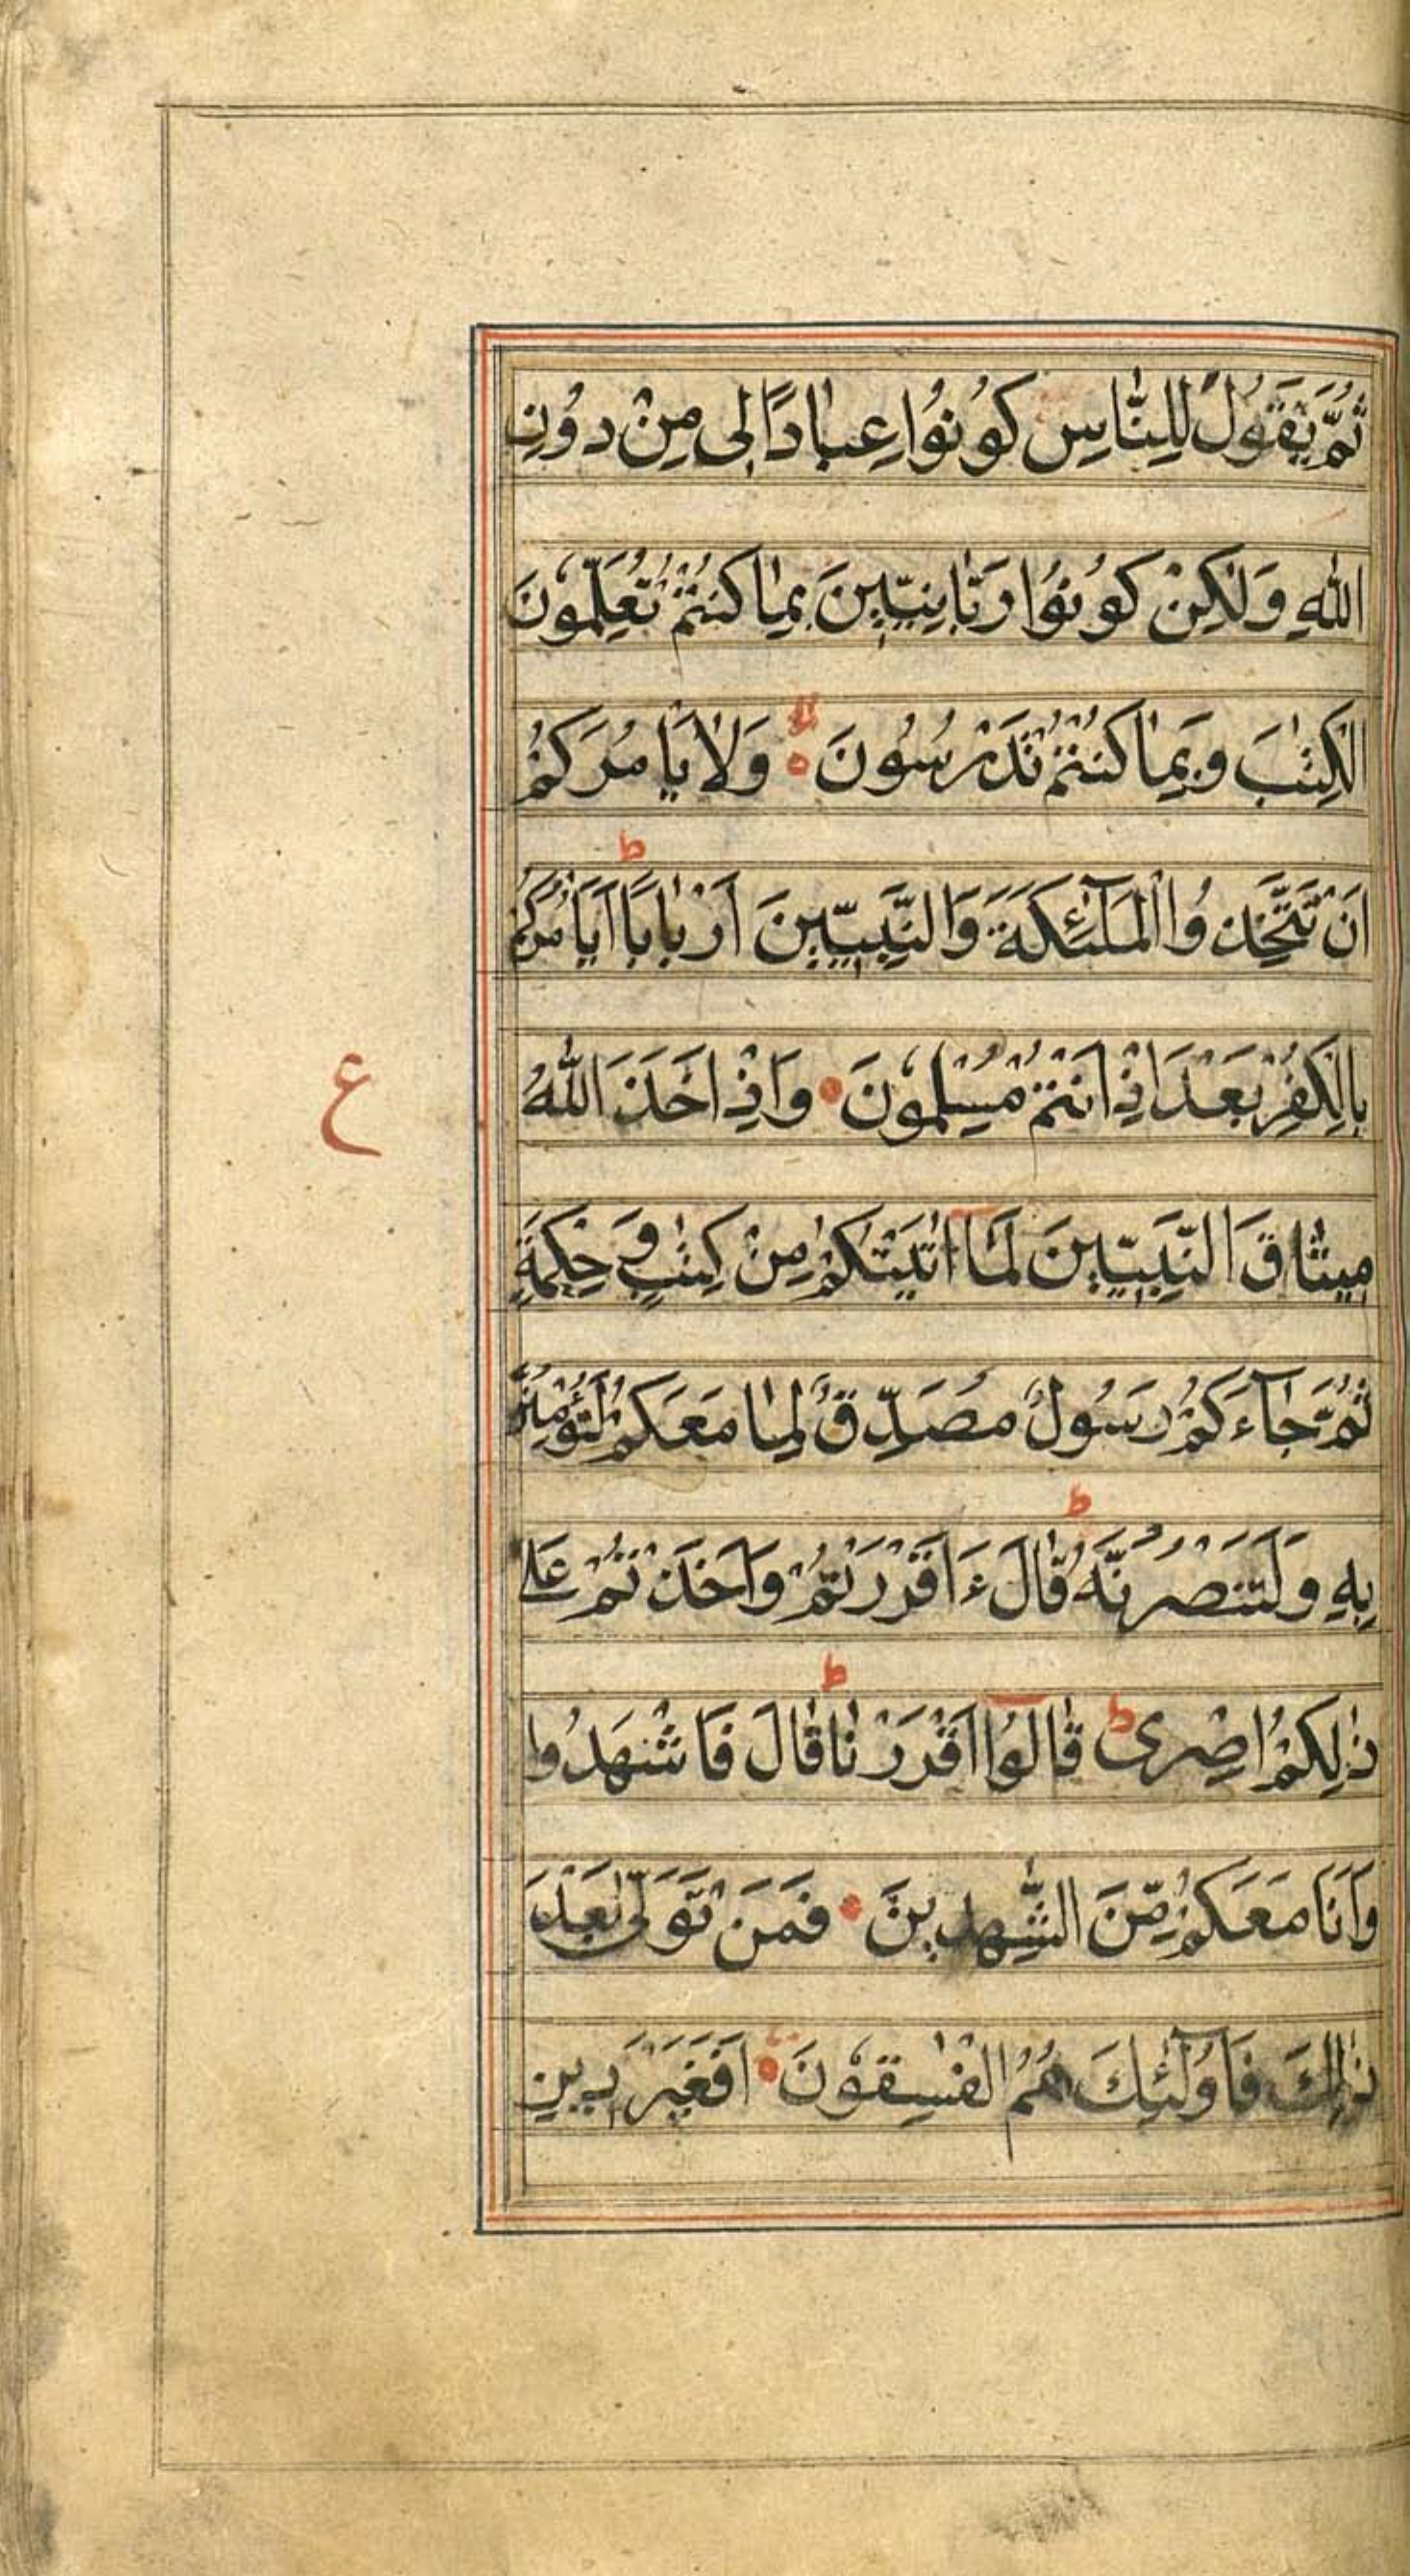 ثُمَّ يَقُوْلَ لِلنَّاسِ كُوْنُوْا عِبَادًا لِى مِنْ دُوْنِ
اللهِ وَلٰكِنْ كُوْنُوْا رَبَّانِيّٖنَ بِمَا كُنْتُمْ تُعَلِّمُوْنَ
الْكِتٰبَ وَبِمَا كُنْتُمْ تَدْرُسُوْنَ ۙ وَلَا يَامُرَكُمْ
اَنْ تَتَّخِذُوا الْمَلٰٓئِكَةَ وَالنَّبِيّٖنَ اَرْبَابًا ط اَيَامُرُكُمْ
بِالْكُفْرِ بَعْدَ اِذْ اَنْتُمْ مُسْلِمُوْنَ • وَاِذْ اَخَذَ اللهُ
ع
مِيْثَاقَ النَّبِيّٖنَ لَمَآ اٰتَيْتُكُمْ مِنْ كِتٰبٍ وَّحِكْمَةٍ
ثُمَّ جَآءَكُمْ رَسُوْلٌ مُصَدِّقٌ لِمَا مَعَكُمْ لَتُؤْمِنُنَّ
بِهٖ وَلَتَنْصُرُنَّهُ ط قَالَ ءَاَقْرَرْتُمْ وَاَخَذْتُمْ عَلٰى
ذٰلِكُمْ اِصْرِى ط قَالُوْٓا اَقْرَرْنَا ط قَالَ فَاشْهَدُوْا
وَاَنَا مَعَكُمْ مِّنَ الشّٰهِدِيْنَ • فَمَنْ تَوَلّٰى بَعْدَ
ذٰلِكَ فَاُولٰٓئِكَ هُمُ الْفٰسِقُوْنَ • اَفَغَيْرَ دِيْنِ